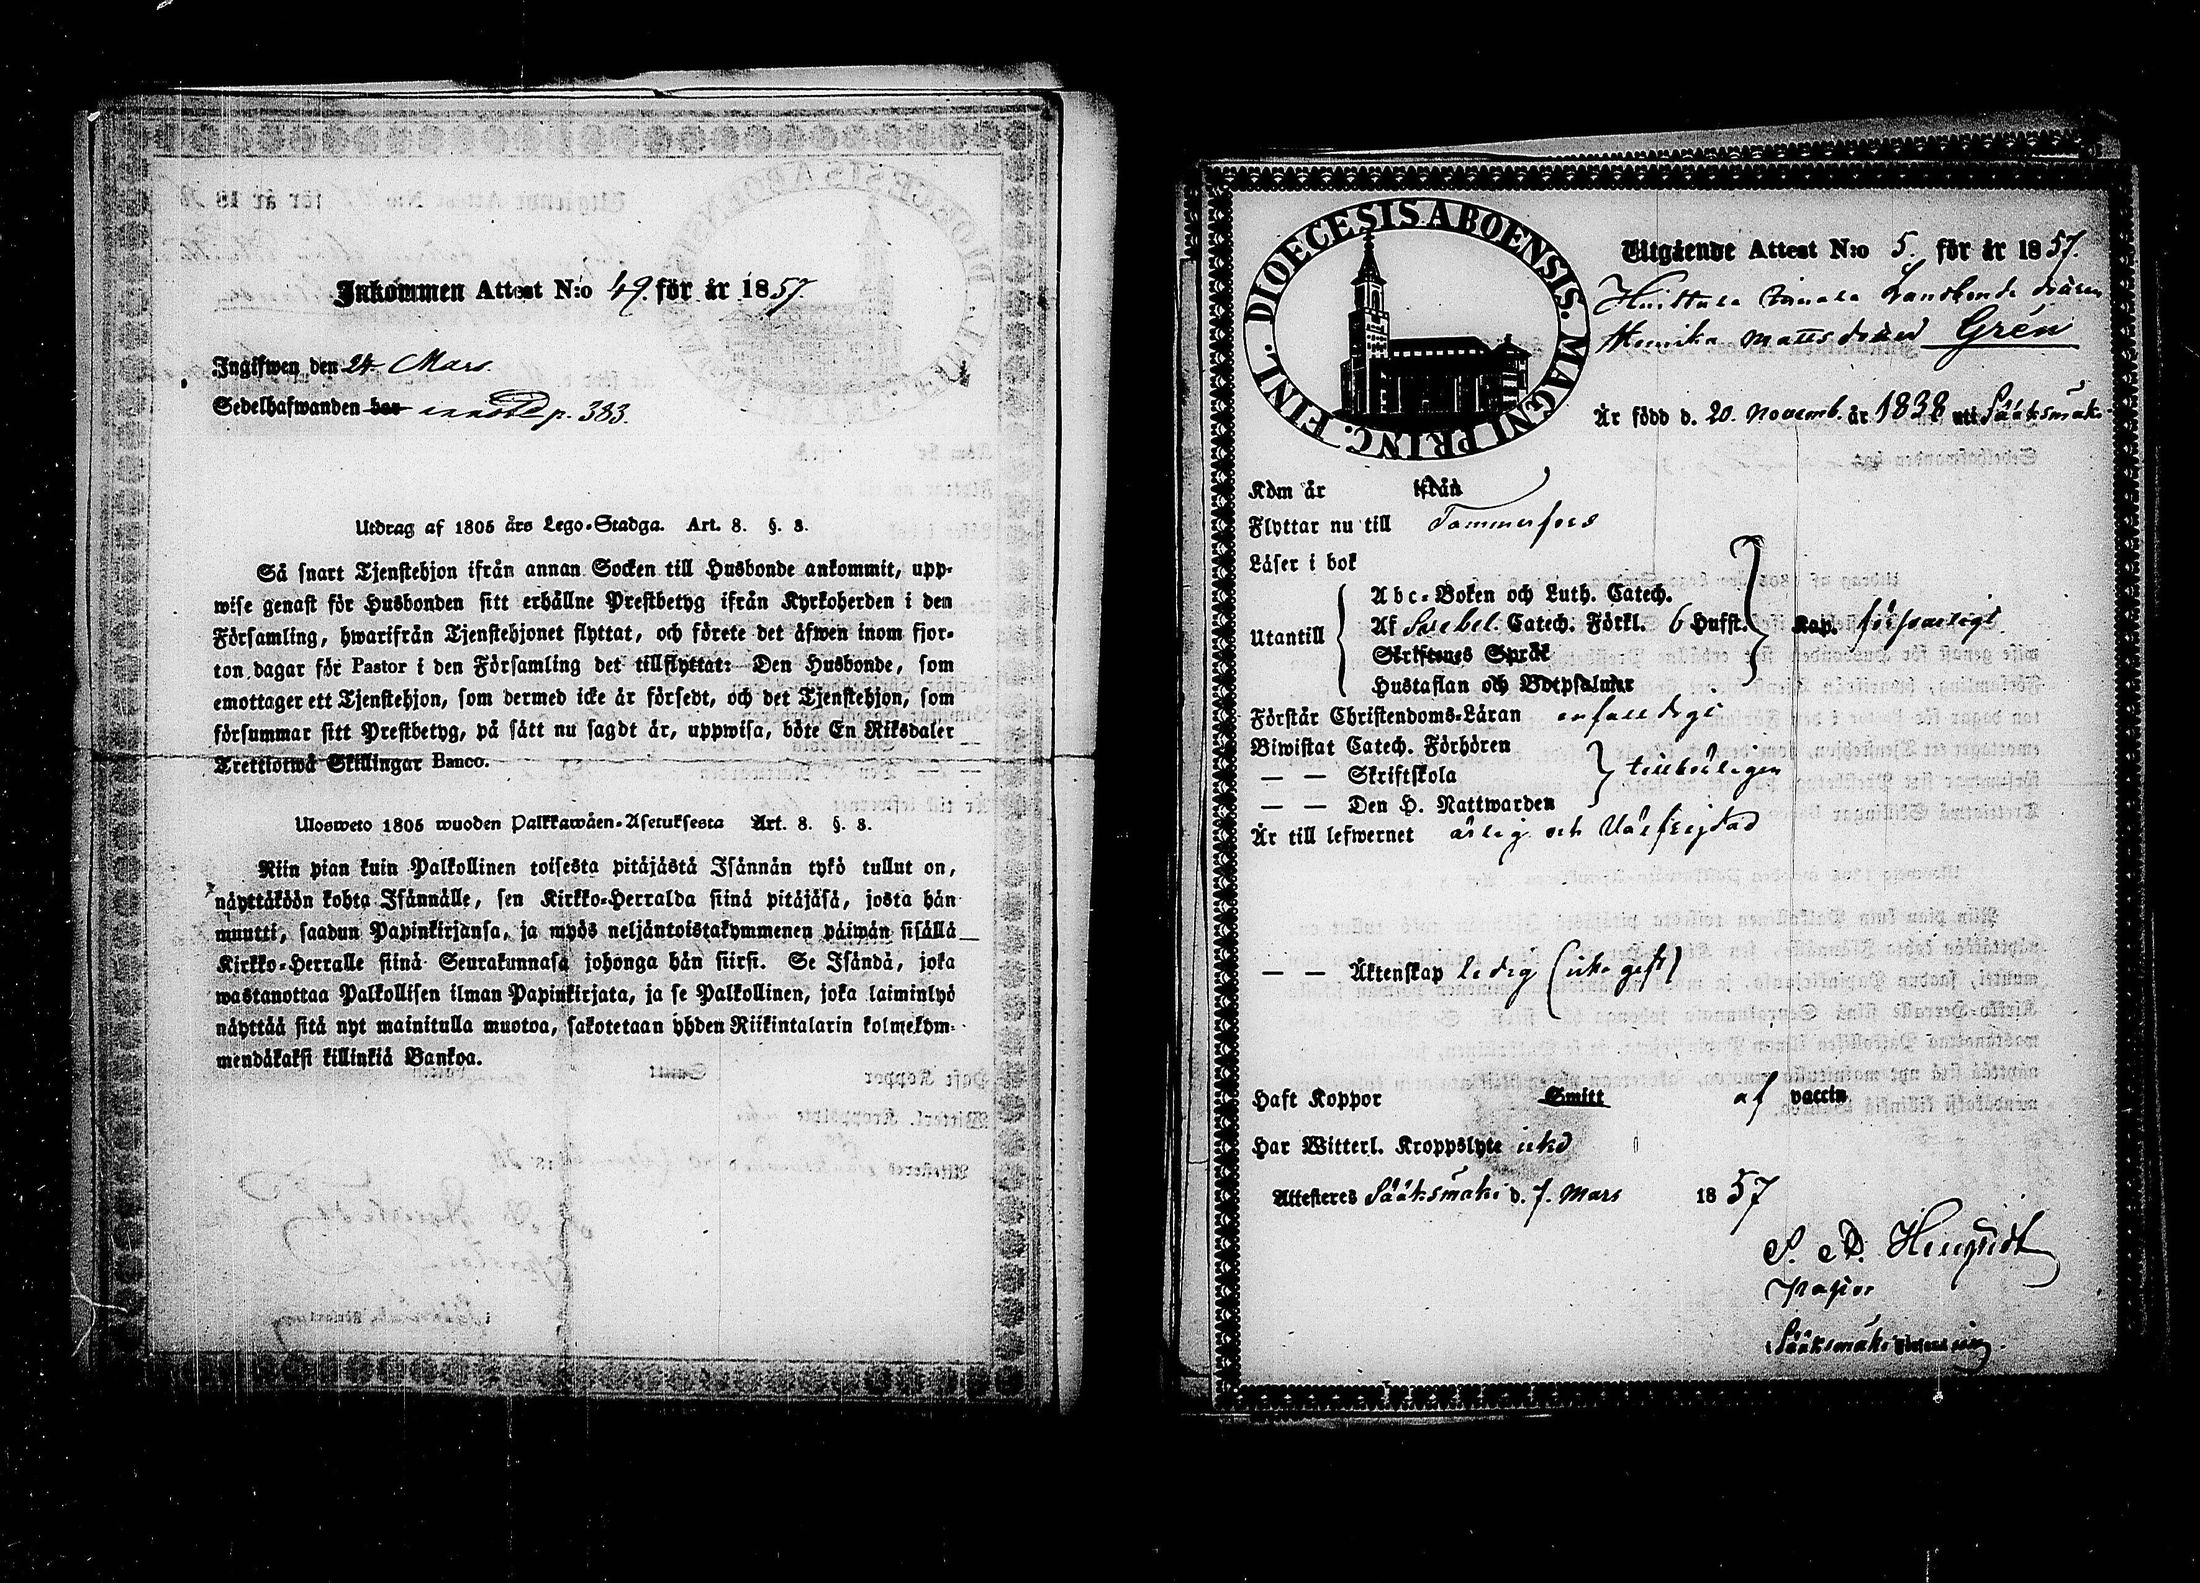 Inkommen Attest N:o 49. för år 1857.
Ingifwen den 24 Mars.
Sedelhafwanden har p. 383.
Utdrag af 1805 års Lego-Stadga. Art. 8. §. 8.
Så snart Tjenstehjon ifrån annan Socken till Husbonde ankommit, upp-
wise genast för Husbonden sitt erhållne Prestbetyg ifrån Kyrkoherden i den
Församling, hwarifrån Tjenstehjonet flyttat, och förete det äfwen inom fjor-
ton dagar för Pastor i den Församling det tillflyttat: Den Husbonde, som
emottager ett Tjenstehjon, som dermed icke är försedt, och det Tjenstehjon, som
försummar sitt Prestbetyg, på sätt nu sagdt är, uppwisa, böte En Riksdaler
Trettiotwå Skillingar Banco.
Ulosweto 1805 wuoden Palkkawäen-Asetuksesta Art. 8. §. 8.
Niin pian kuin Palkollinen toisesta pitäjästä Isännän tykö tullut on,
näyttäköön kohta Isännälle, sen Kirkko-Herralda siinä pitäjäsä, josta hän
muutti, saadun Papinkirjansa, ja myös neljäntoistakymmenen päiwän sisällä
Kirkko-Herralle siinä Seurakunnasa johonga hän siirsi. Se Isändä, joka
wastanottaa Palkollisen ilman Papinkirjata, ja se Palkollinen, joka laiminlyö
näyttää sitä nyt mainitulla muotoa, sakotetaan yhden Riikintalarin kolmekym-
mendäkaksi killinkiä Bankoa.
DIOECESIS ABOENSIS. MAGNI PRINC. FINL.
Utgående Attest N:o 5. för år 1857.
Huittula
Mattsdotter Grén
Är född d. 20. Novemb. år 1838 uti Sääksmäki
Kom år ifrån
Flyttar nu till Tammerfors
Läser i bok
Abc-Boken och Luth. Catech.
Utantill Af Svebel. Catech. Förkl. 6 Hufst. Kap. försvarligt
Skriftenes Språk
Hustaflan och Botpsalmer
Förstår Christendoms-Läran enfaldigt
Biwistat Catech. Förhören
— — Skriftskola tillbörligen
— — Den H. Nattwarden
Är till lefwernet ärlig och välfrejdad
— — Äktenskap ledig (icke gift)
Haft Koppor Smitt af vaccin
Har Witterl. Kroppslyte icke
Attesteras Sääksmäki d. 7. Mars 1857
Pastor
Sääksmäki Församling.